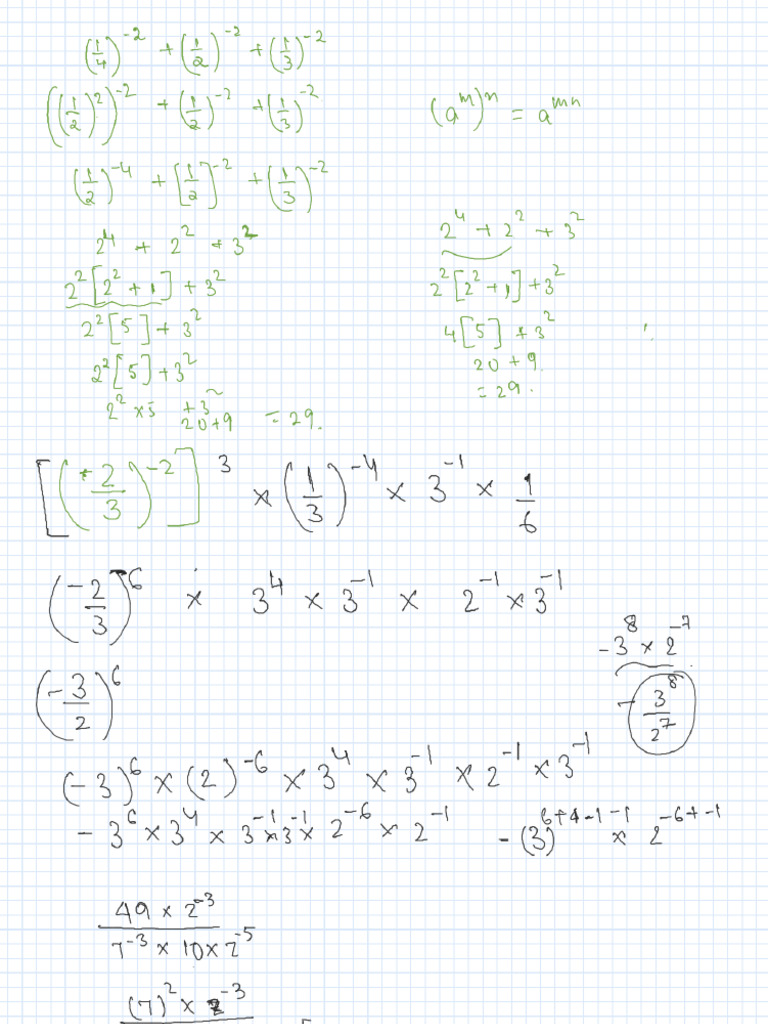 (1/4)^-2 + (1/2)^-2 + (1/3)^-2
((1/2)^2)^-2 + (1/2)^-2 + (1/3)^-2
(a^m)^n = a^mn
(1/2)^-4 + [1/2]^-2 + (1/3)^-2
2^4 + 2^2 + 3^2
2^2[2^2+1] + 3^2
2^2[5] + 3^2
2^2[5] + 3^2
2^2 × 5 + 3^2
20+9 = 29.
2^4 + 2^2 + 3^2
2^2[2^2+1] + 3^2
4[5] + 3^2
20 + 9.
= 29.
[(-2/3)^-2]^3 × (1/3)^-4 × 3^-1 × 1/6
(-2/3)^-6 × 3^4 × 3^-1 × 2^-1 × 3^-1
(-3/2)^6
-3^8 × 2^-7
- 3^8/2^7
(-3)^6 × (2)^-6 × 3^4 × 3^-1 × 2^-1 × 3^-1
-3^6 × 3^4 × 3^-1 × 3^-1 × 2^-6 × 2^-1
-(3)^6+4-1-1 × 2^-6+-1
49 × 2^-3
7^-3 × 10 × 2^-5
(7)^2 × 2^-3